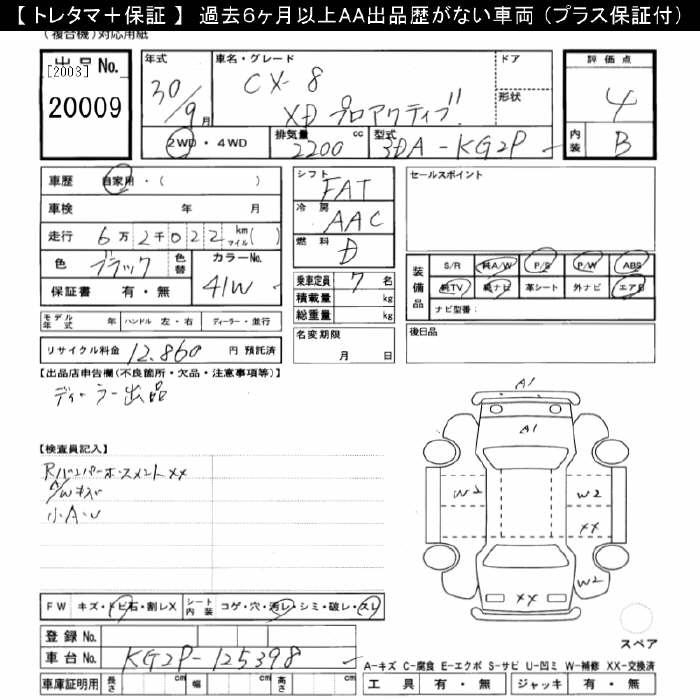 【 トレタマ＋保証 】 過去6ヶ月以上AA出品歴がない車両 (プラス保証付)
(複合機)対応用紙
出品No.
[2003]
20009
年式
30/9月
車名・グレード
CX-8
XD プロアクティブ
ドア
形状
2WD・4WD
排気量
2200 cc
型式
3DA-KG2P
評価点
4
内装
B
車歴 自家用・( )
車検 年 月
走行 6万2千022 km マイル( )
色 ブラック 色替
カラーNo.
41W
保証書 有・無
シフト FAT
冷房 AAC
燃料 D
乗車定員 7 名
積載量 kg
総重量 kg
名変期限
月 日
セールスポイント
装備品
S/R 純A/W P/S P/W ABS
純TV 純ナビ 革シート 外ナビ エアB
ナビ型番：
後日品
モデル年式 年 ハンドル 左・右 ディーラー・並行
リサイクル料金 12,860 円 預託済
【出品店申告欄(不良箇所・欠品・注意事項等)】
ディーラー出品
【検査員記入】
Rバンパーホースメントxx
A/Wキズ
小A・U
A1
A1
W2
W2
xx
W2
xx
スペア
FW キズ・トビ石・割レX シート内装 コゲ・穴・汚レ・シミ・破レ・スレ
登録 No.
車台 No. KG2P-125398
車庫証明用 長さ cm 幅 cm 高さ cm
A-キズ C-腐食 E-エクボ S-サビ U-凹ミ W-補修 XX-交換済
工具 有・無 ジャッキ 有・無